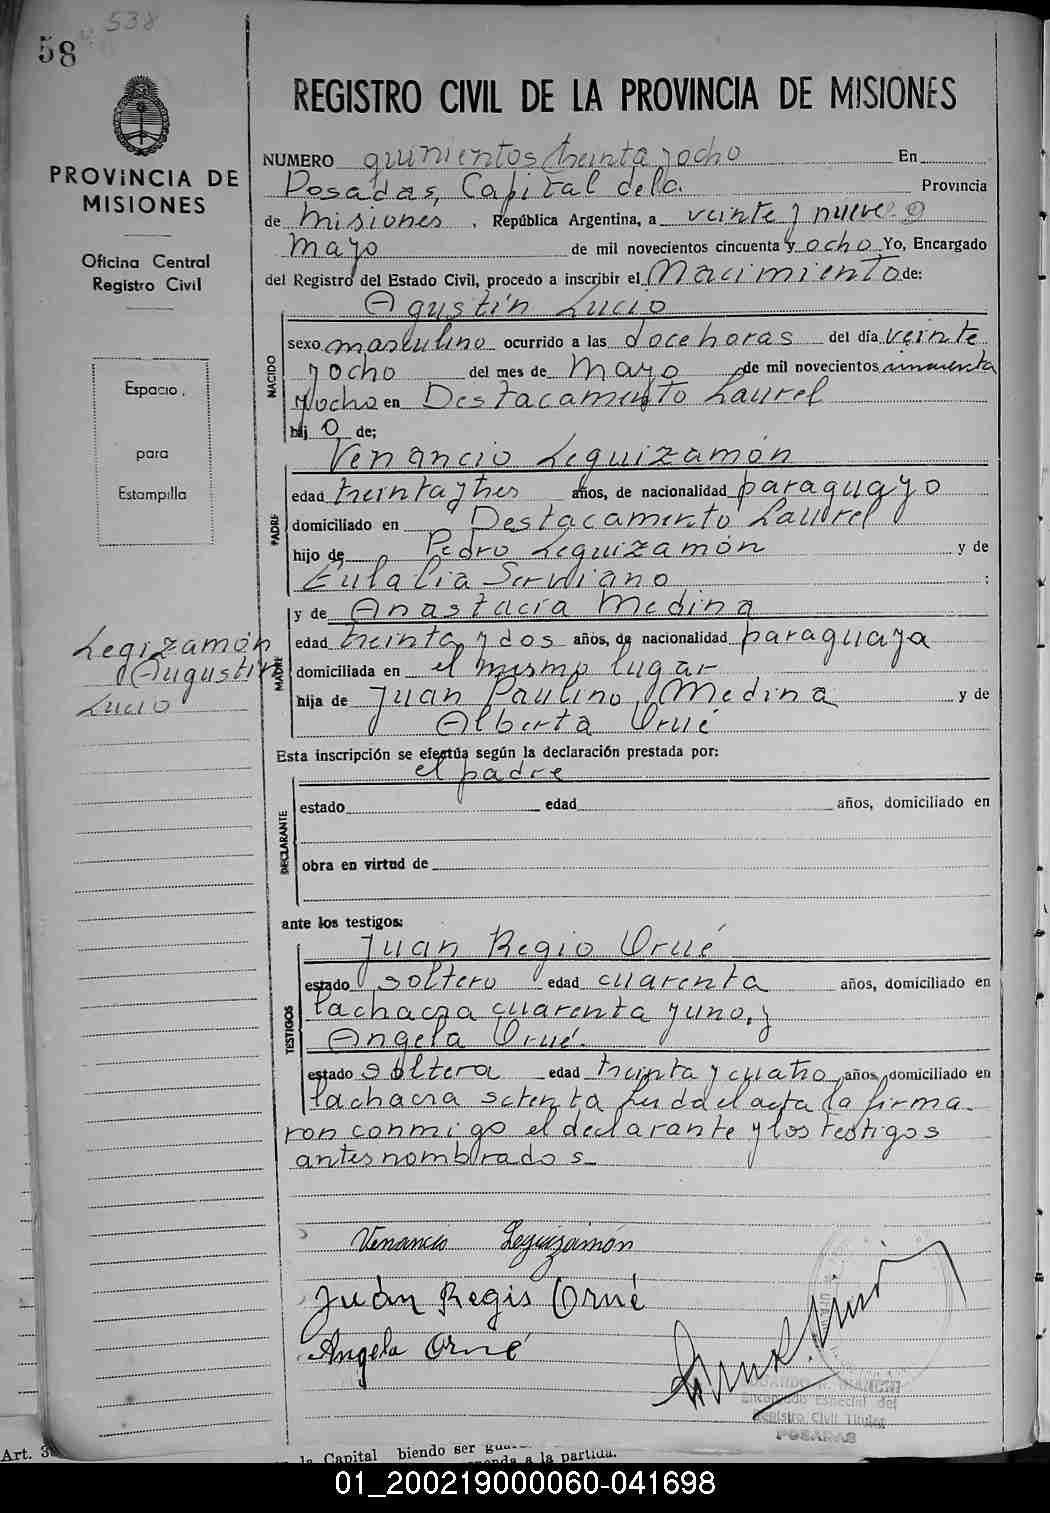 538
58
REGISTRO CIVIL DE LA PROVINCIA DE MISIONES
PROVINCIA DE
MISIONES
Oficina Central
Registro Civil
Espacio
para
Estampilla
NUMERO quinientos treinta y ocho En
Posadas, Capital dela Provincia
de Misiones, República Argentina, a veinte y nueve D
Mayo de mil novecientos cincuenta y ocho Yo, Encargado
del Registro del Estado Civil, procedo a inscribir el Nacimiento de:
Agustín Lucio
NACIDO
sexo masculino ocurrido a las doce horas del día veinte
y ocho del mes de Mayo de mil novecientos cincuenta
y ocho en Destacamento Laurel
hij o de;
Venancio Leguizamón
PADRE
edad treinta y tres años, de nacionalidad paraguayo
domiciliado en Destacamento Laurel
hijo de Pedro Leguizamón y de
Eulalia Serviano :
y de Anastacia Medina
Legizamón
Augustin
Lucio
MADRE
edad treinta y dos años, de nacionalidad paraguaya
domiciliada en el mismo lugar
hija de Juan Paulino Medina y de
Alberta Orué
Esta inscripción se efectúa según la declaración prestada por:
el padre
DECLARANTE
estado edad años, domiciliado en
obra en virtud de
ante los testigos:
Juan Regio Orué
TESTIGOS
estado soltero edad cuarenta años, domiciliado en
lachacra cuarenta y uno, y
Angela Orué.
estado soltera edad treinta y cuatro años, domiciliado en
lachacra setenta Leida el acta la firma-
ron conmigo el declarante y los testigos
antes nombrados_
Venancio Leguizamón
Juan Regis Orué
Angela Orué
Encargado Especial del
Registro Civil Titular
POSADAS
Art. 3
la Capital biendo ser
a la partida.
01_200219000060-041698